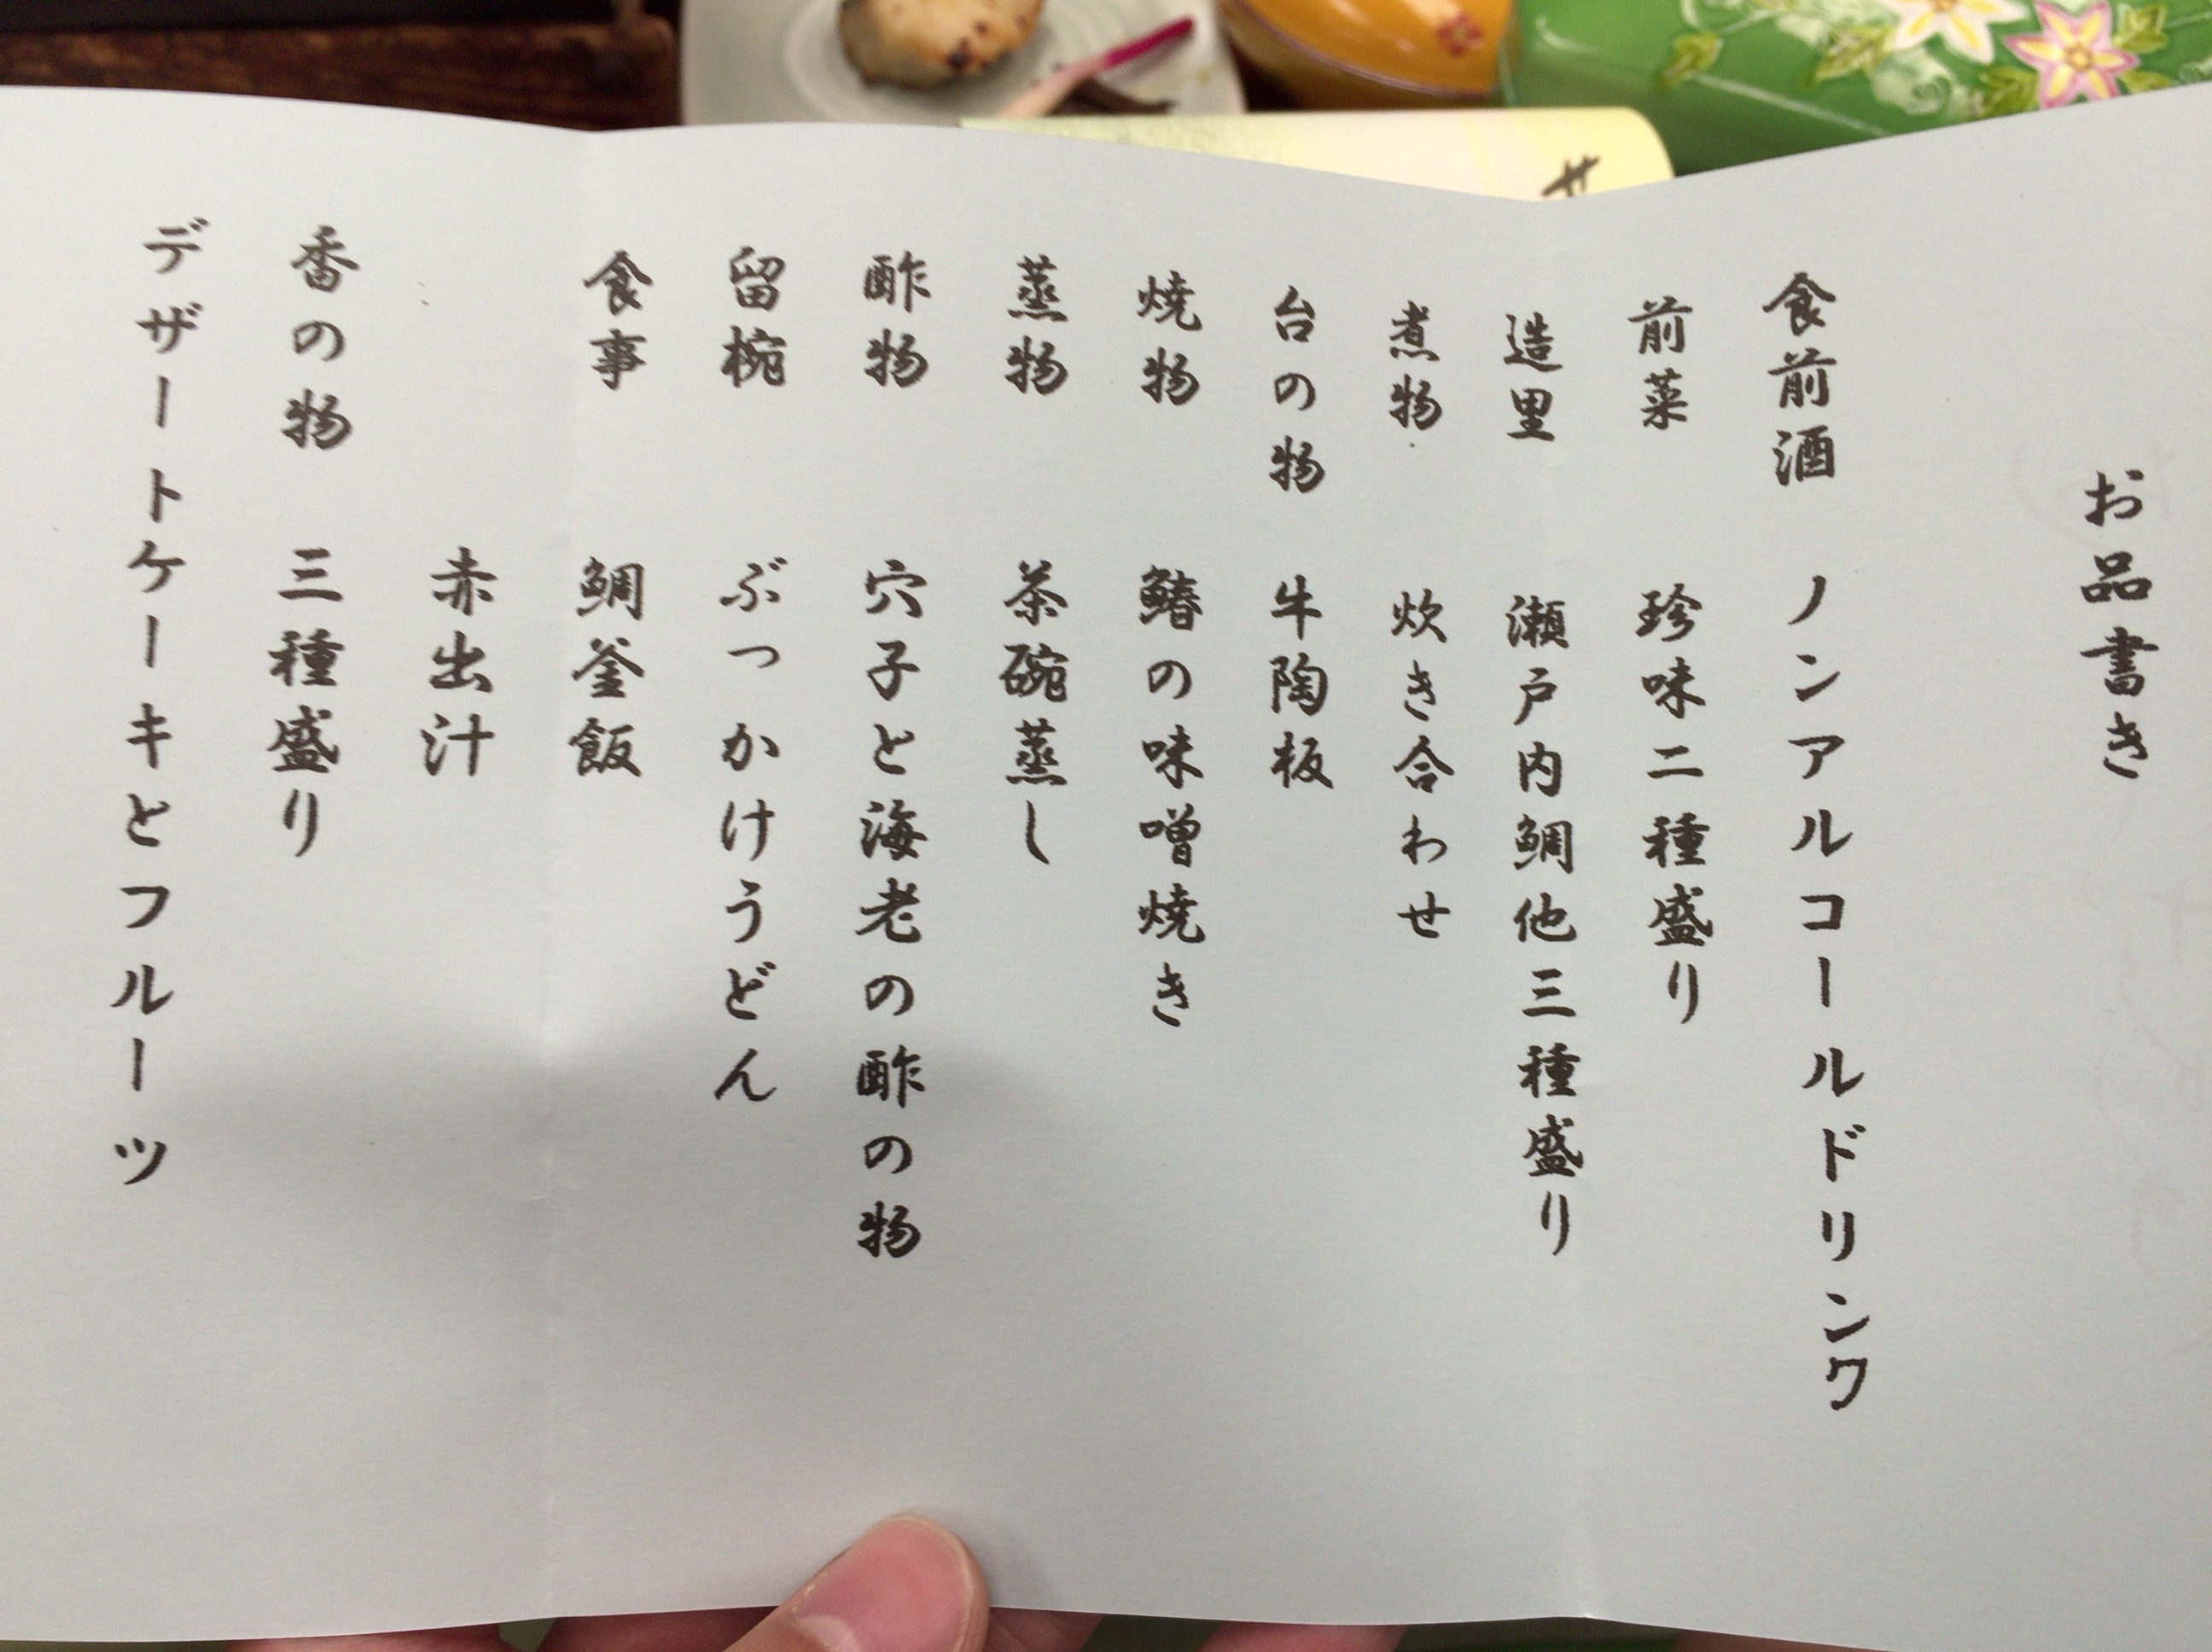 お品書き
食前酒 ノンアルコールドリンク
前菜 珍味二種盛り
造里 瀬戸内鯛他三種盛り
煮物 炊き合わせ
台の物 牛陶板
焼物 鰆の味噌焼き
蒸物 茶碗蒸し
酢物 穴子と海老の酢の物
留椀 ぶっかけうどん
食事 鯛釜飯
赤出汁
香の物 三種盛り
デザートケーキとフルーツ